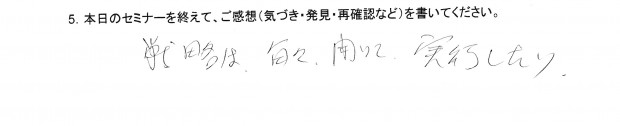 5. 本日のセミナーを終えて、ご感想（気づき・発見・再確認など）を書いてください。
戦略は、 実行したい。